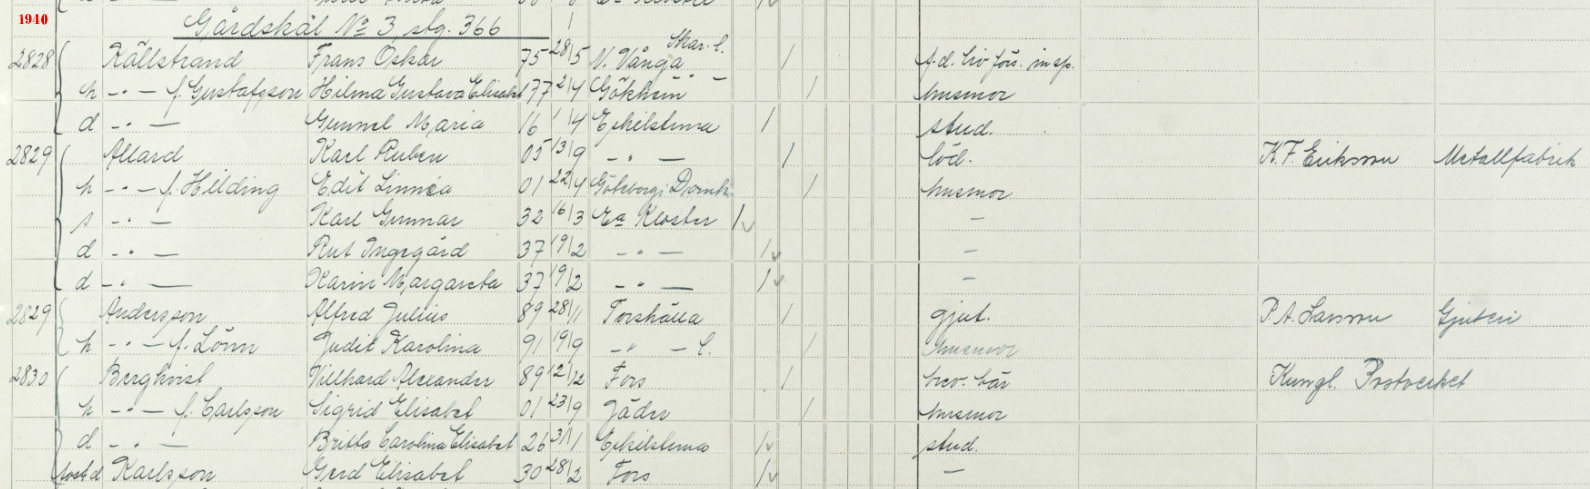 1940
Gårdskäl No 3, stg. 366
2828 Källstrand Frans Oskar 75 28/5 N. Vånga Skar. l. / f.d. liv förs. insp.
h -"- f. Gustafsson Hilma Gustava Elisabet 77 2/4 Gökhem " - / husmor
d -"- Gunnel Maria 16 1/4 Eskilstuna / stud.
2829 Allard Karl Ruben 05 13/9 -"- / löd. K.F. Eriksson Metallfabrik
h -"- f. Hilding Edit Linnéa 01 22/4 Göteborgs Domk. / husmor
s -"- Karl Gunnar 32 16/3 Ea Kloster /v -
d -"- Rut Ingegärd 37 19/2 -"- /v -
d -"- Karin Margareta 37 19/2 -"- /v -
2829 Andersson Alfred Julius 89 28/11 Torshälla / gjut. P.A. Larsson Gjuteri
h -"- f. Lönn Judit Karolina 91 19/9 -"- l. / husmor
2830 Bergkvist Villhard Alexander 89 12/12 Fors / brev. bär Kungl. Postverket
h -"- f. Carlsson Sigrid Elisabet 01 23/9 Jäder / husmor
d -"- Britta Carolina Elisabet 26 31/1 Eskilstuna /v stud.
fostd Karlsson Gerd Elisabet 30 28/2 Fors /v -